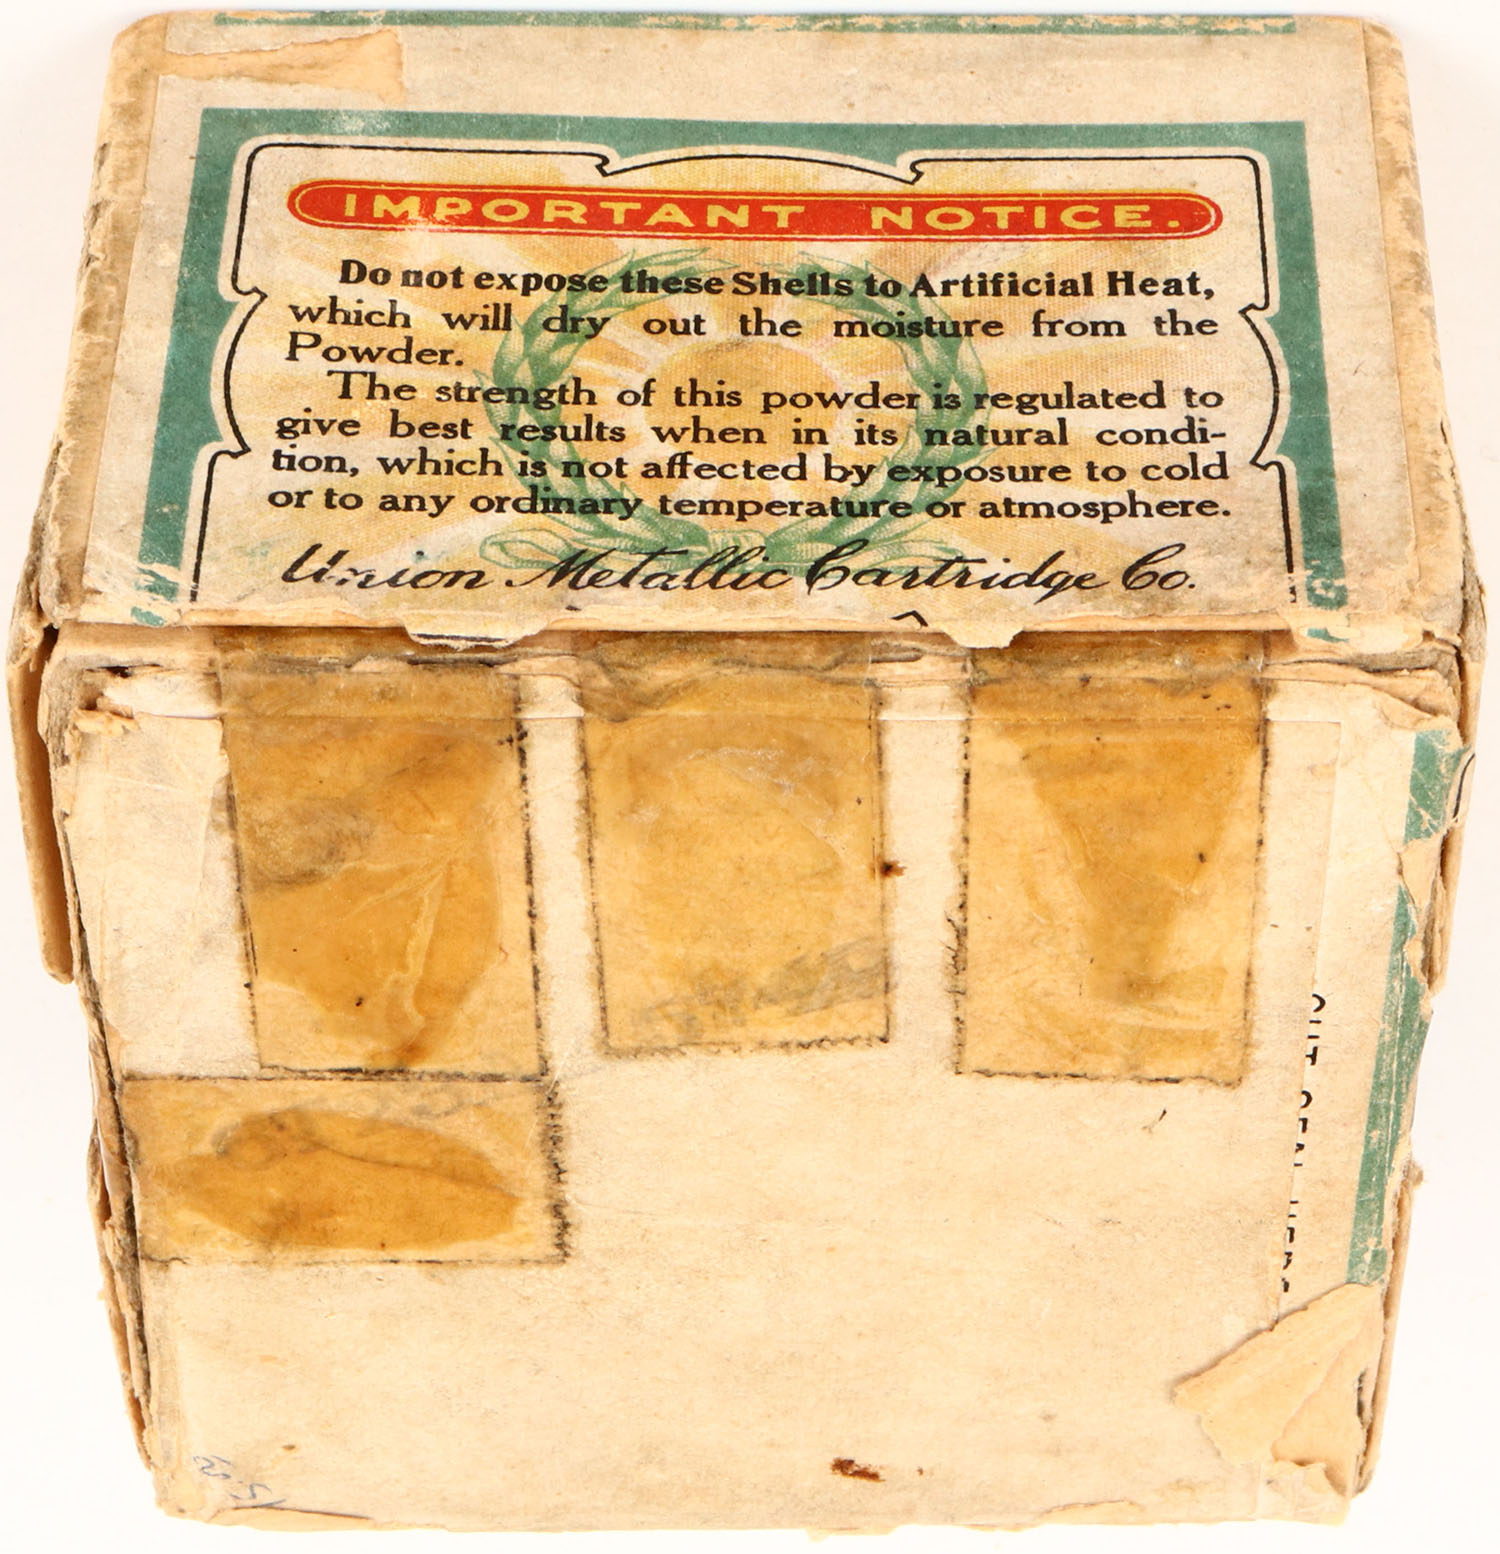 IMPORTANT NOTICE.
Do not expose these Shells to Artificial Heat,
which will dry out the moisture from the
Powder.
The strength of this powder is regulated to
give best results when in its natural condi-
tion, which is not affected by exposure to cold
or to any ordinary temperature or atmosphere.
Union Metallic Cartridge Co.
CUT SEAL HERE